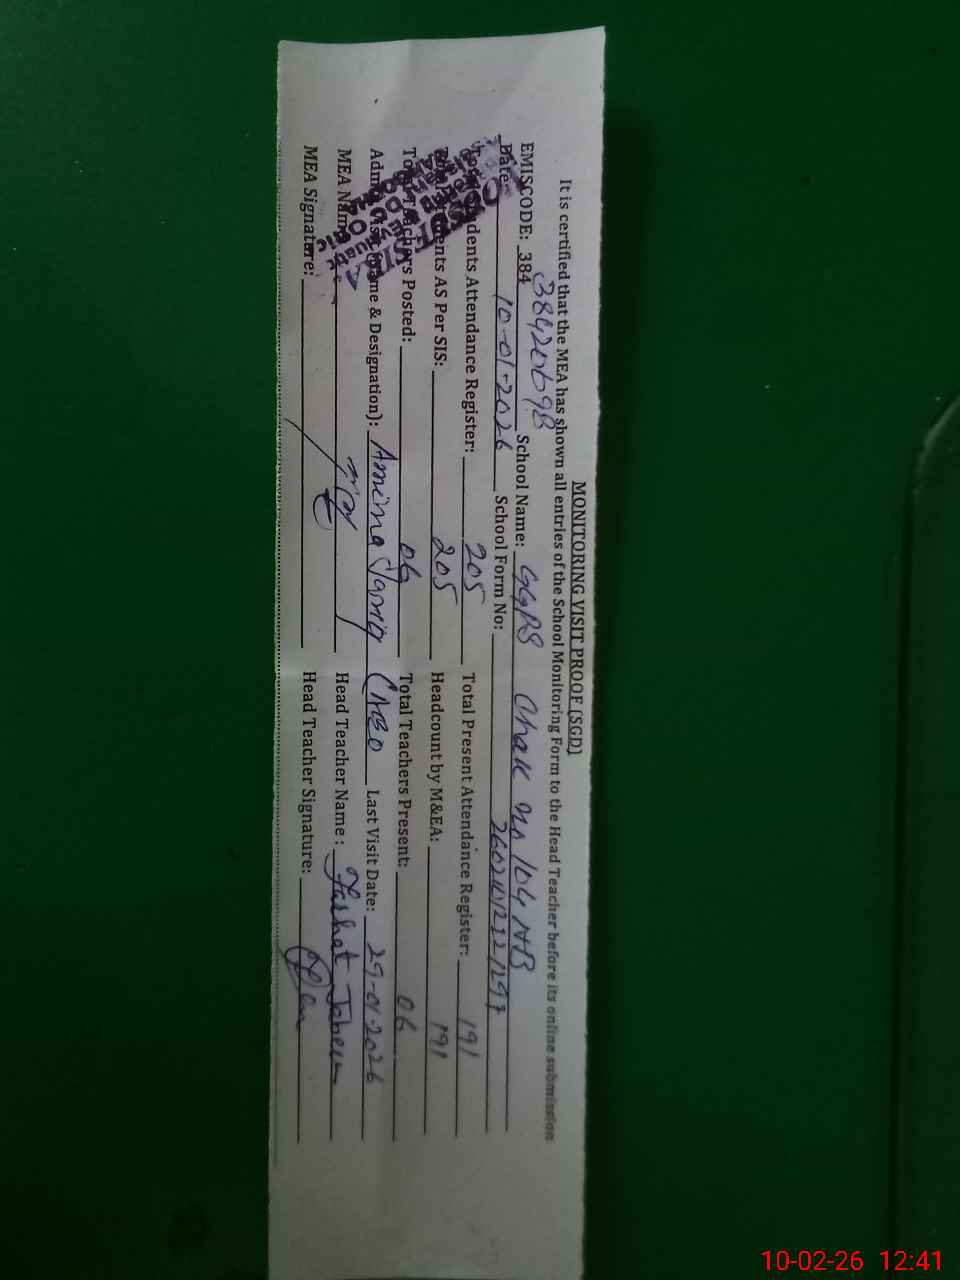 MONITORING VISIT PROOF (SGD)
It is certified that the MEA has shown all entries of the School Monitoring Form to the Head Teacher before its online submission
EMISCODE: 384 38420698 School Name: GGPS Chak no 104 NB
Date: 10-01-2026 School Form No:
Students Attendance Register: 205 Total Present Attendance Register: 191
Students AS Per SIS: 205 Headcount by M&EA: 191
Total Teachers Posted: 06 Total Teachers Present: 06
Admin Visit (Name & Designation): Amima Last Visit Date: 29-01-2026
MEA Name: Head Teacher Name: Farhat Jabeen
MEA Signature: Head Teacher Signature:
10-02-26 12:41